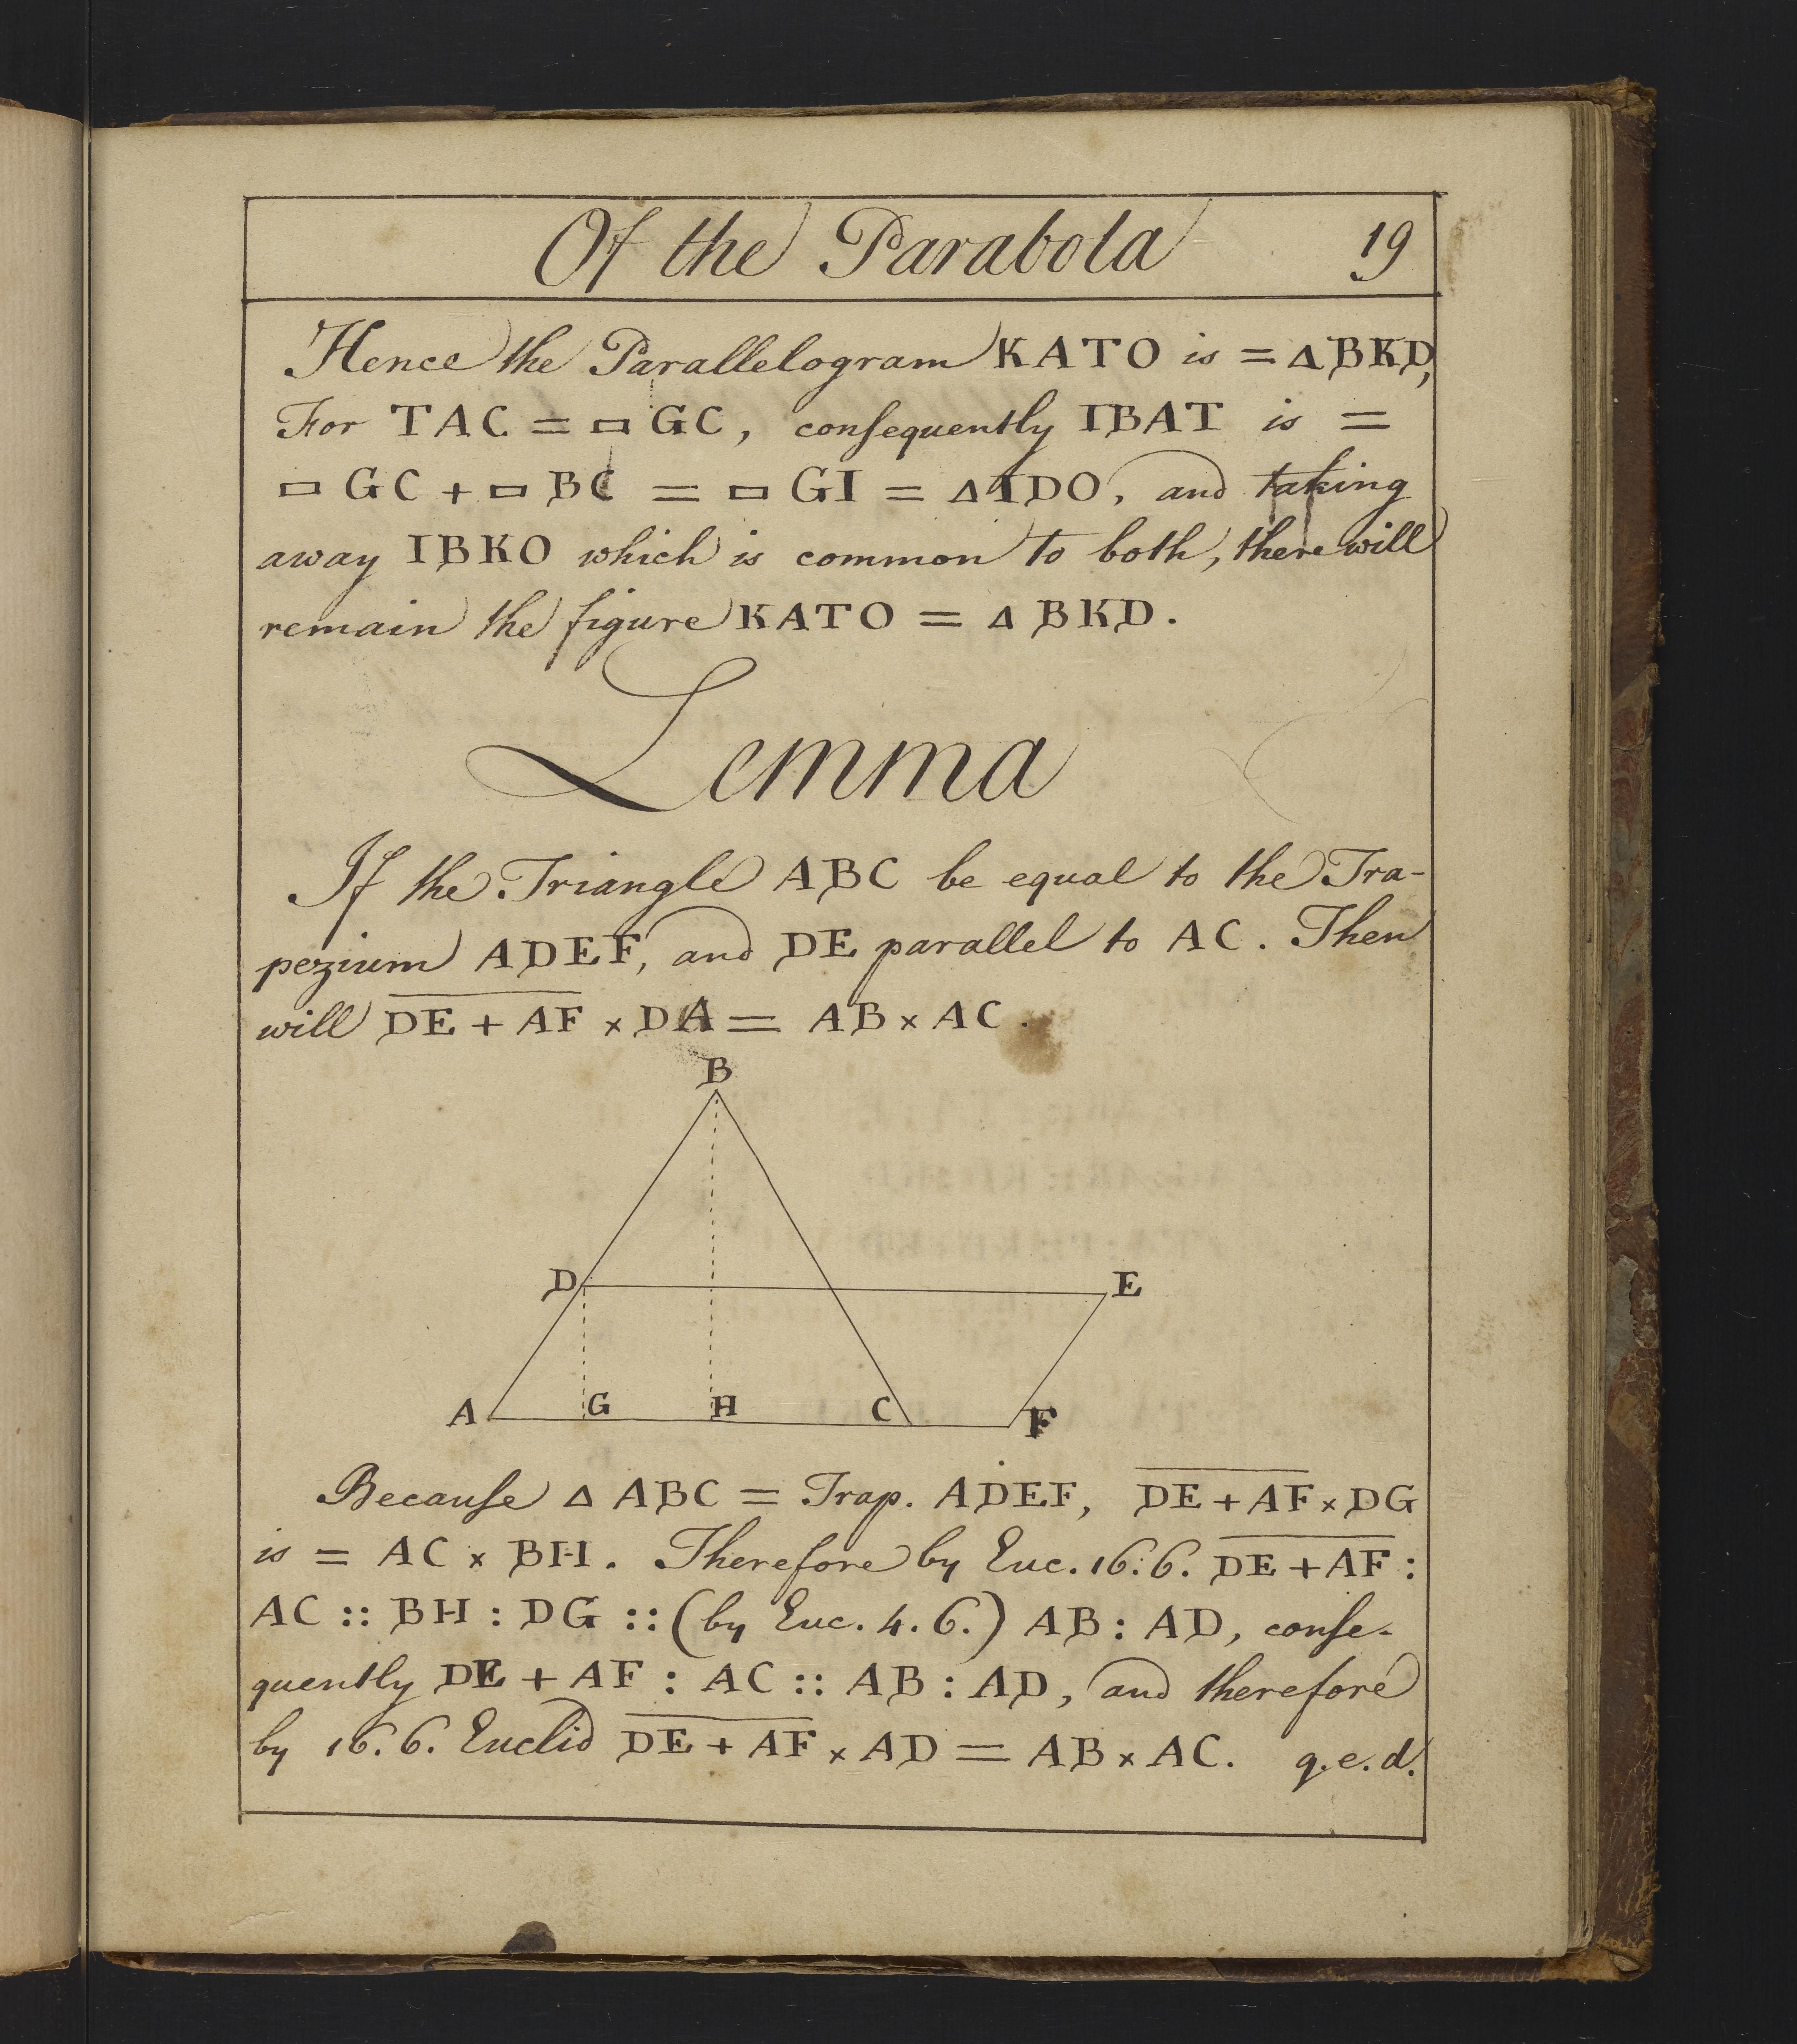 Of the Parabola 19
Hence the Parallelogram KATO is = △BKD,
For TAC = ▭ GC, conſequently IBAT is =
▭ GC + ▭ BC = ▭ GI = △IDO, and taking
away IBKO which is common to both, there will
remain the figure KATO = △ BKD.
Lemma
If the Triangle ABC be equal to the Tra-
pezium ADEF, and DE parallel to AC. Then
will D̅E̅ ̅+̅ ̅A̅F̅ × DA = AB × AC.
B
D E
A G H C F
Becauſe △ ABC = Trap. ADEF, D̅E̅ ̅+̅ ̅A̅F̅ × DG
is = AC × BH. Therefore by Euc. 16.6. D̅E̅ ̅+̅ ̅A̅F̅ :
AC :: BH : DG :: (by Euc. 4.6.) AB : AD, conſe-
quently DE + AF : AC :: AB : AD, and therefore
by 16.6. Euclid D̅E̅ ̅+̅ ̅A̅F̅ × AD = AB × AC. q.e.d.